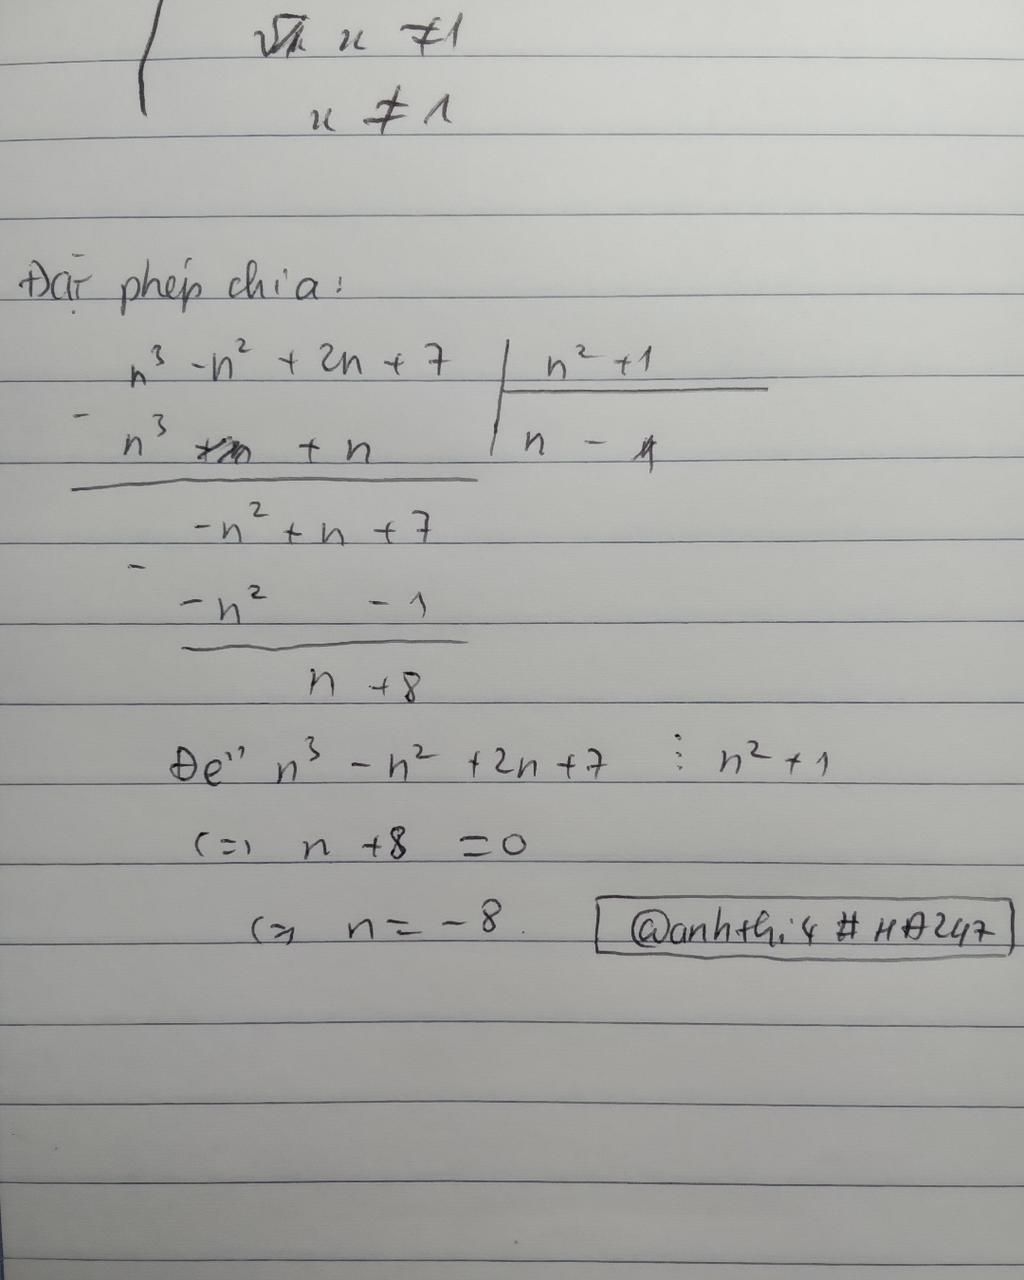 x ≠ 1
x ≠ 1
Đặt phép chia:
n³ - n² + 2n + 7 | n² + 1
- n³ + n | n - 1
-n² + n + 7
- -n² - 1
n + 8
Để n³ - n² + 2n + 7 ⋮ n² + 1
(=) n + 8 = 0
(=) n = -8.
@anhthi4 # HA247